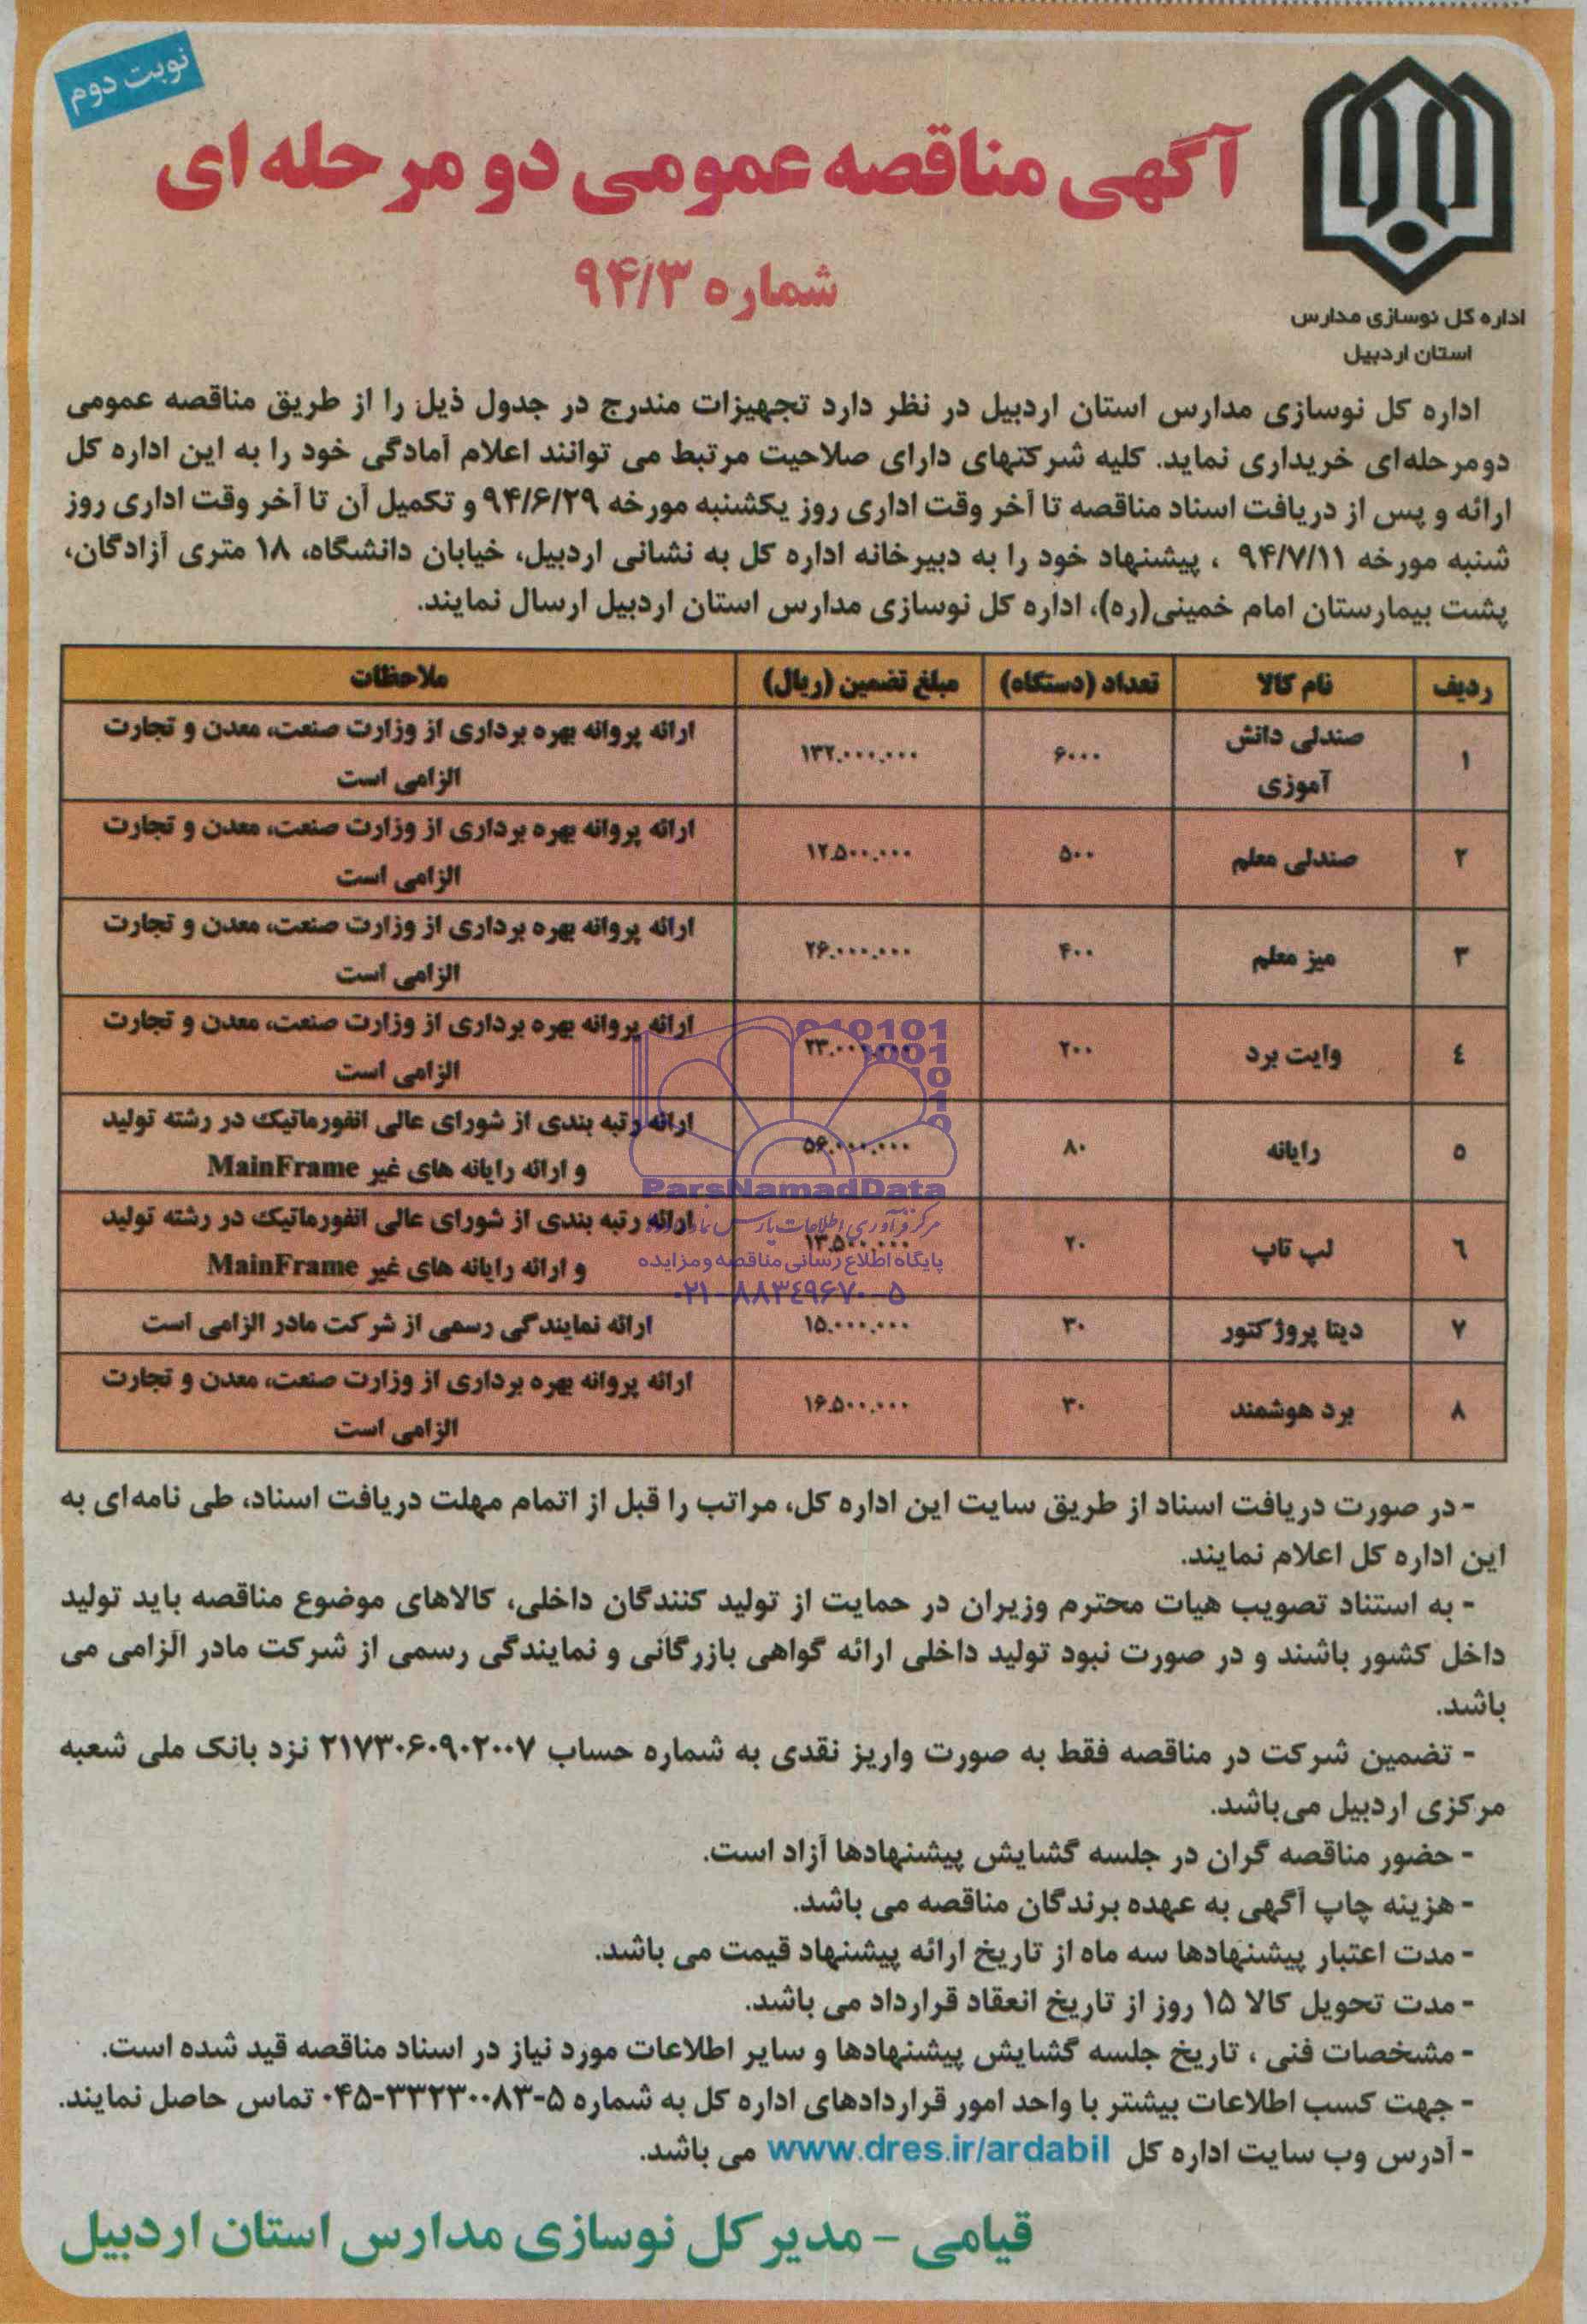 نوبت دوم
آگهی مناقصه عمومی دو مرحله ای
شماره ۹۴/۳
اداره کل نوسازی مدارس
استان اردبیل
اداره کل نوسازی مدارس استان اردبیل در نظر دارد تجهیزات مندرج در جدول ذیل را از طریق مناقصه عمومی
دومرحله‌ای خریداری نماید. کلیه شرکتهای دارای صلاحیت مرتبط می توانند اعلام آمادگی خود را به این اداره کل
ارائه و پس از دریافت اسناد مناقصه تا آخر وقت اداری روز یکشنبه مورخه ۹۴/۶/۲۹ و تکمیل آن تا آخر وقت اداری روز
شنبه مورخه ۹۴/۷/۱۱ ، پیشنهاد خود را به دبیرخانه اداره کل به نشانی اردبیل، خیابان دانشگاه، ۱۸ متری آزادگان،
پشت بیمارستان امام خمینی(ره)، اداره کل نوسازی مدارس استان اردبیل ارسال نمایند.
ردیف نام کالا تعداد (دستگاه) مبلغ تضمین (ریال) ملاحظات
۱ صندلی دانش آموزی ۶۰۰۰ ۱۳۲.۰۰۰.۰۰۰ ارائه پروانه بهره برداری از وزارت صنعت، معدن و تجارت
الزامی است
۲ صندلی معلم ۵۰۰ ۱۲.۵۰۰.۰۰۰ ارائه پروانه بهره برداری از وزارت صنعت، معدن و تجارت
الزامی است
۳ میز معلم ۴۰۰ ۲۶.۰۰۰.۰۰۰ ارائه پروانه بهره برداری از وزارت صنعت، معدن و تجارت
الزامی است
٤ وایت برد ۲۰۰ ۲۳.۰۰۰.۰۰۰ ارائه پروانه بهره برداری از وزارت صنعت، معدن و تجارت
الزامی است
۵ رایانه ۸۰ ۵۶.۰۰۰.۰۰۰ ارائه رتبه بندی از شورای عالی انفورماتیک در رشته تولید
و ارائه رایانه های غیر MainFrame
٦ لپ تاپ ۲۰ ۱۳.۵۰۰.۰۰۰ ارائه رتبه بندی از شورای عالی انفورماتیک در رشته تولید
و ارائه رایانه های غیر MainFrame
۷ دیتا پروژکتور ۳۰ ۱۵.۰۰۰.۰۰۰ ارائه نمایندگی رسمی از شرکت مادر الزامی است
۸ برد هوشمند ۳۰ ۱۶.۵۰۰.۰۰۰ ارائه پروانه بهره برداری از وزارت صنعت، معدن و تجارت
الزامی است
ParsNamadData
پایگاه اطلاع رسانی مناقصه و مزایده
۰۲۱-۸۸۳۴۹۶۷۰-۵
- در صورت دریافت اسناد از طریق سایت این اداره کل، مراتب را قبل از اتمام مهلت دریافت اسناد، طی نامه‌ای به
این اداره کل اعلام نمایند.
- به استناد تصویب هیات محترم وزیران در حمایت از تولید کنندگان داخلی، کالاهای موضوع مناقصه باید تولید
داخل کشور باشند و در صورت نبود تولید داخلی ارائه گواهی بازرگانی و نمایندگی رسمی از شرکت مادر الزامی می
باشد.
- تضمین شرکت در مناقصه فقط به صورت واریز نقدی به شماره حساب ۲۱۷۳۰۶۰۹۰۲۰۰۷ نزد بانک ملی شعبه
مرکزی اردبیل می‌باشد.
- حضور مناقصه گران در جلسه گشایش پیشنهادها آزاد است.
- هزینه چاپ آگهی به عهده برندگان مناقصه می باشد.
- مدت اعتبار پیشنهادها سه ماه از تاریخ ارائه پیشنهاد قیمت می باشد.
- مدت تحویل کالا ۱۵ روز از تاریخ انعقاد قرارداد می باشد.
- مشخصات فنی ، تاریخ جلسه گشایش پیشنهادها و سایر اطلاعات مورد نیاز در اسناد مناقصه قید شده است.
- جهت کسب اطلاعات بیشتر با واحد امور قراردادهای اداره کل به شماره ۵-۳۳۲۳۰۰۸۳-۰۴۵ تماس حاصل نمایند.
- آدرس وب سایت اداره کل www.dres.ir/ardabil می باشد.
قیامی – مدیر کل نوسازی مدارس استان اردبیل